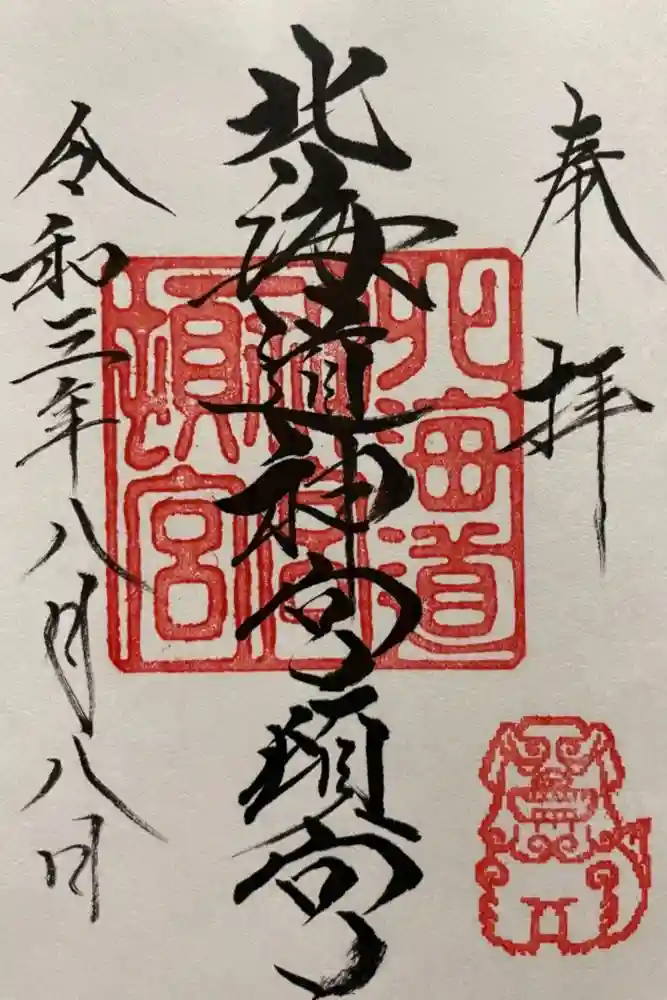 奉拝
北海道神宮頓宮
北海道
神宮
頓宮
令和三年八月八日